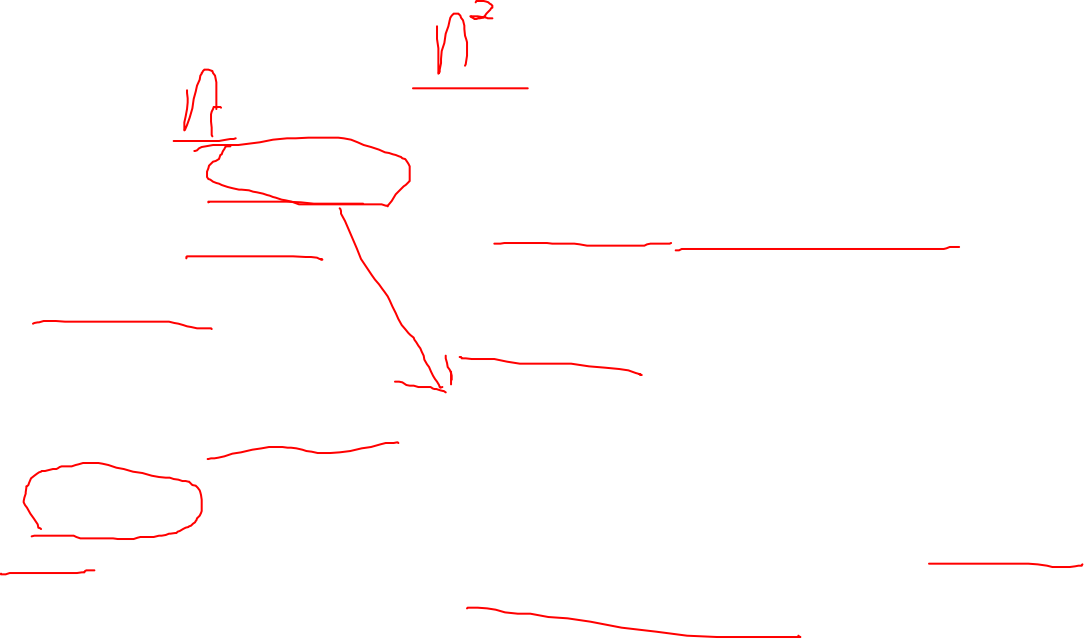 n²
n